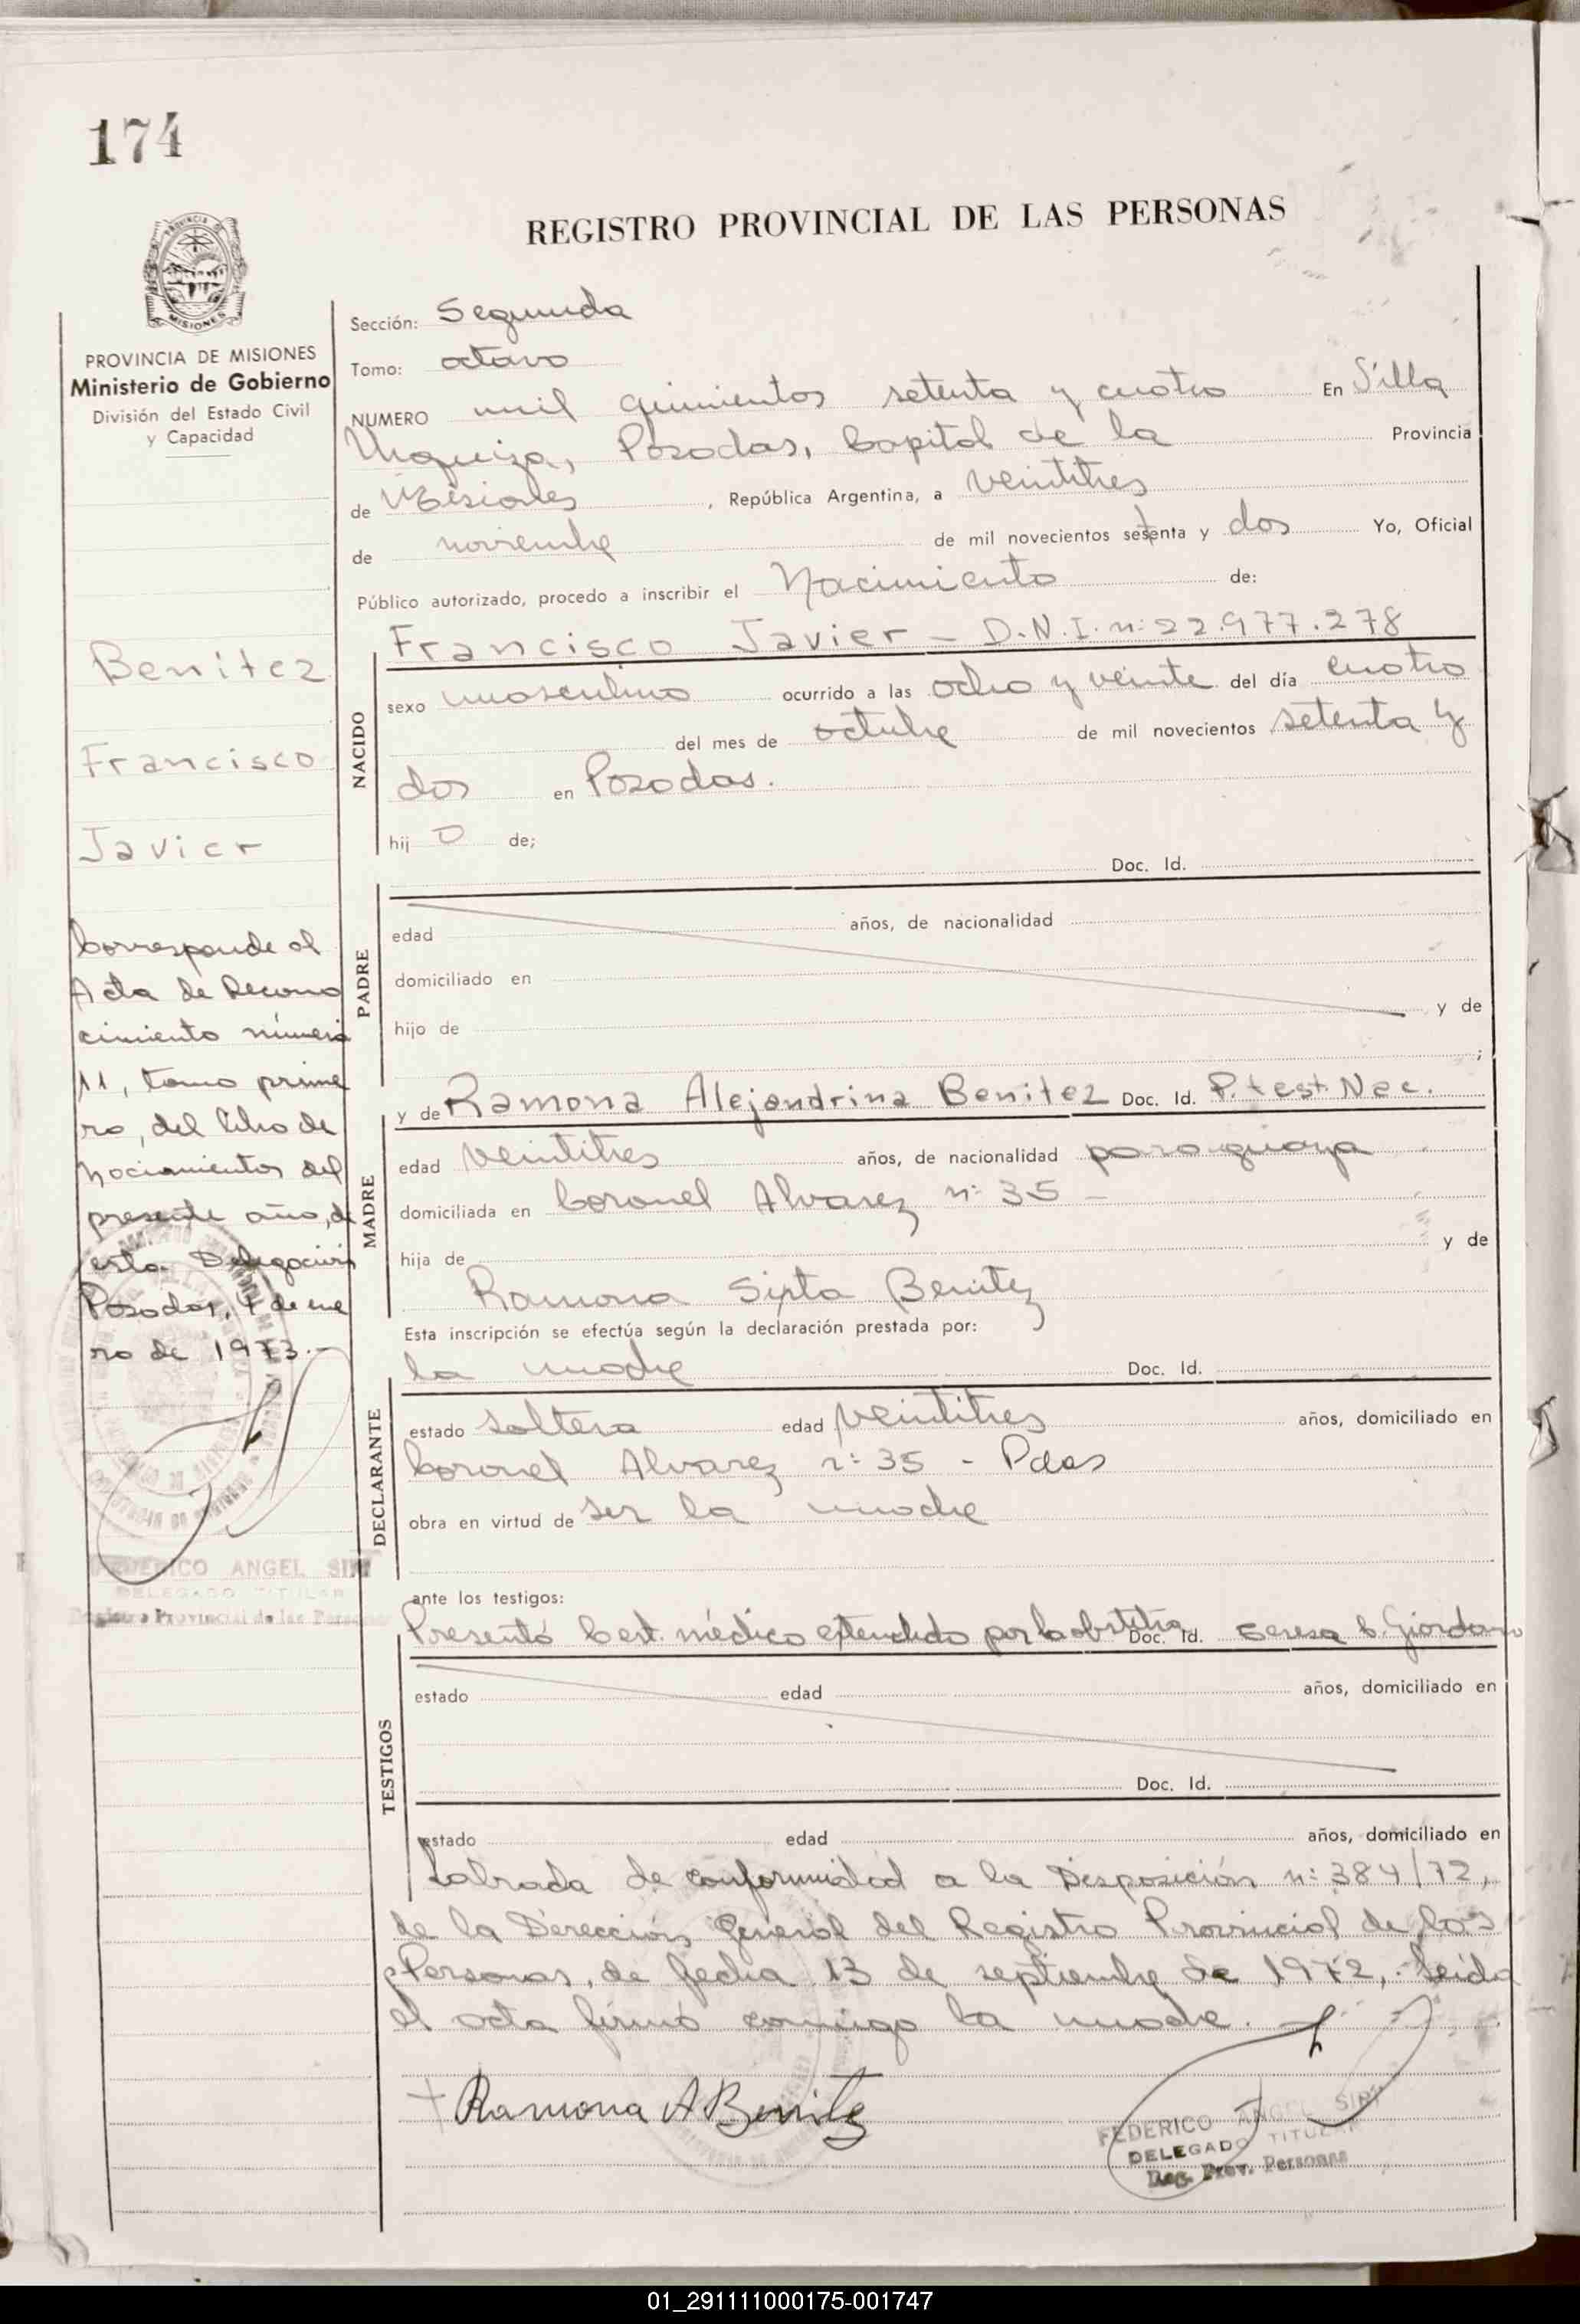 174
REGISTRO PROVINCIAL DE LAS PERSONAS
PROVINCIA DE MISIONES
Ministerio de Gobierno
División del Estado Civil
y Capacidad
Benitez
Francisco
Javier
Corresponde al
Acta de Recono
cimiento número
11, tomo prime
ro, del libro de
Nacimientos del
presente año, de
esta Delegación
Posadas, 4 de ene
ro de 1973.-
FEDERICO ANGEL SIRI
DELEGADO TITULAR
Registro Provincial de las Personas
Sección: Segunda
Tomo: octavo
NUMERO mil quinientos setenta y cuatro En Villa
Urquiza, Posadas, Capital de la Provincia
de Misiones, República Argentina, a veintitres
de noviembre de mil novecientos setenta y dos Yo, Oficial
Público autorizado, procedo a inscribir el Nacimiento de:
NACIDO
Francisco Javier - D.N.I. n: 22.977.278
sexo masculino ocurrido a las ocho y veinte del día cuatro
del mes de octubre de mil novecientos setenta y
dos en Posadas.
hij o de;
PADRE
Doc. Id.
edad años, de nacionalidad
domiciliado en
hijo de y de
;
MADRE
y de Ramona Alejandrina Benitez Doc. Id. P. test. Nac.
edad veintitres años, de nacionalidad paraguaya
domiciliada en Coronel Alvarez n: 35 -
hija de y de
Ramona Sixta Benitez
Esta inscripción se efectúa según la declaración prestada por:
DECLARANTE
la madre Doc. Id.
estado soltera edad veintitres años, domiciliado en
Coronel Alvarez n: 35 - Pdas
obra en virtud de ser la madre
ante los testigos:
TESTIGOS
Presentó Cert. médico extendido por la obstetra Doc. Id. Teresa C. Giordano
estado edad años, domiciliado en
Doc. Id.
estado edad años, domiciliado en
Labrada de conformidad a la Disposición n: 384/72,
de la Dirección General del Registro Provincial de las
Personas, de fecha 13 de septiembre de 1972,. Leída
el acta firmó conmigo la madre.
Ramona A Benitez
FEDERICO ANGEL SIRI
DELEGADO TITULAR
Reg. Prov. Personas
01_291111000175-001747